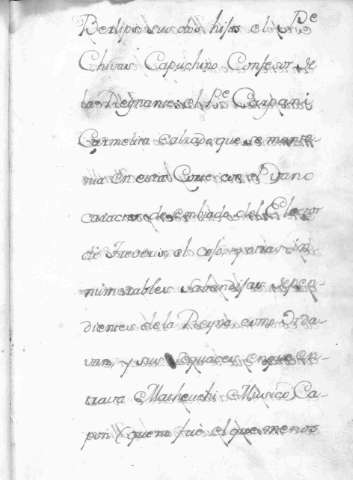 Berlips sus dos hijos el P.e
Chiusa Capuchino Confesor de
la Reyna, en el P.e Carpani
Carmelita Calzado, que se mante
nia en esta Corte con el
caracter de embiado del Elector
de Treveris, el cojo, y otras in
numerables sabandijas depen
dientes de la Reyna, como
y sus sequaces, en que en
traua Matheuchi Musico Ca
pon, que no fue el que menos